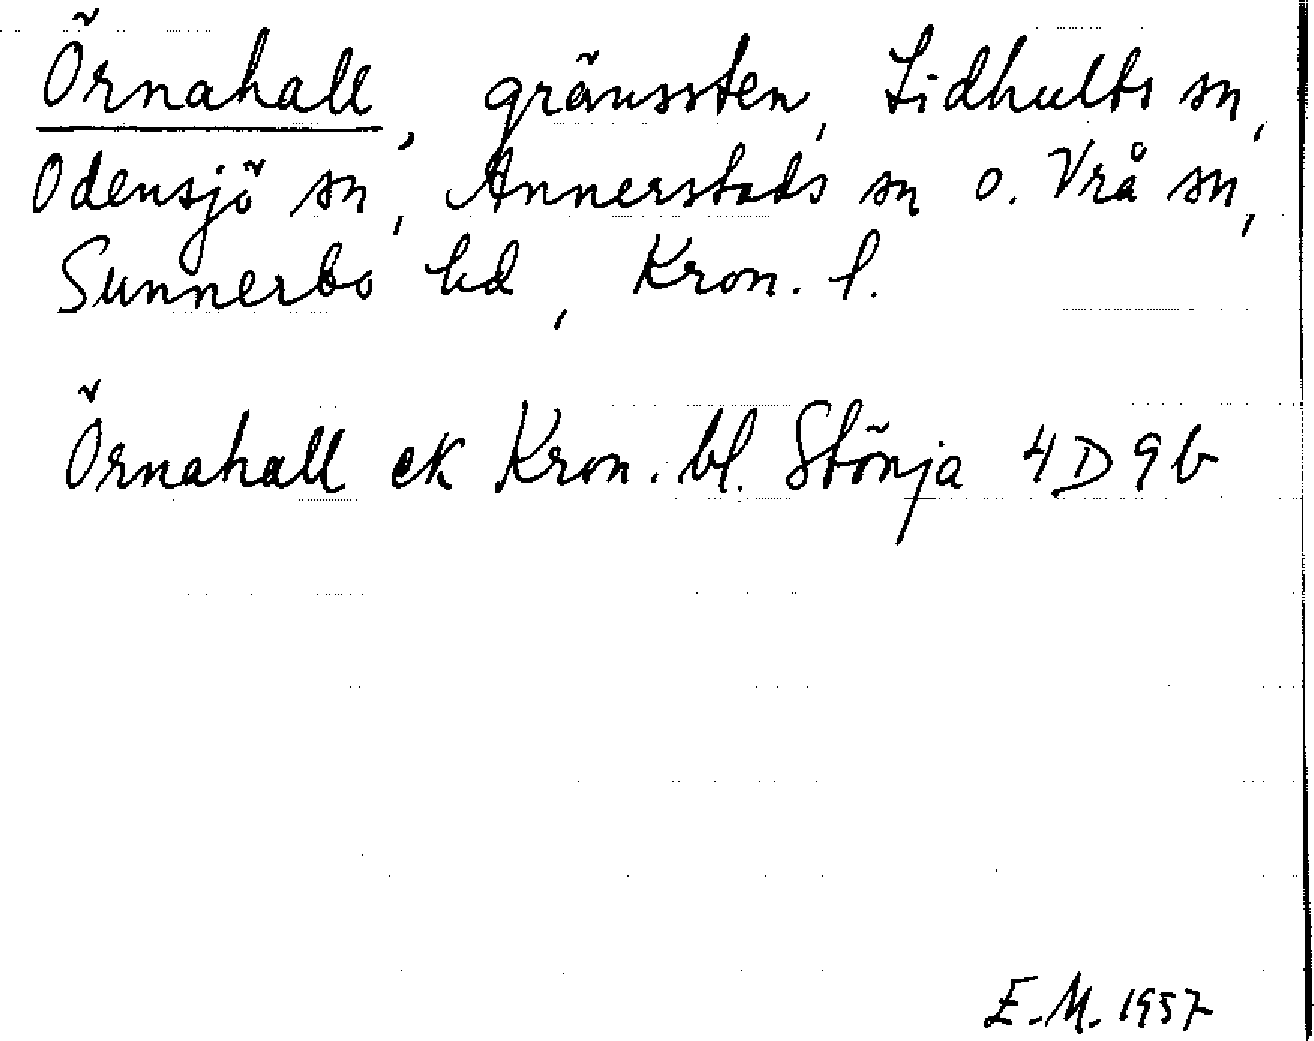 Örnahall, gränssten, Lidhults sn,
Odensjö sn, Annerstads sn o. Vrå sn,
Sunnerbo hd, Kron. l.
Örnahall ek Kron. bl. Stönja 4D9b
E.M. 1957